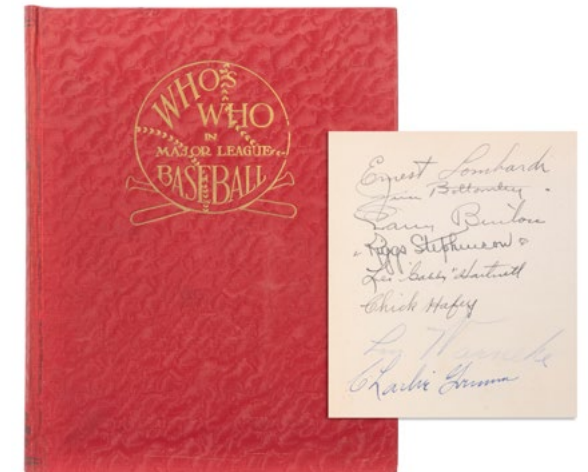 WHO'S
WHO
IN
MAJOR LEAGUE
BASEBALL
Ernest Lombardi
Jim Bottomley
Larry Benton
Riggs Stephenson
Leo "Gabby" Hartnett
Chick Hafey
Lon Warneke
Charlie Grimm